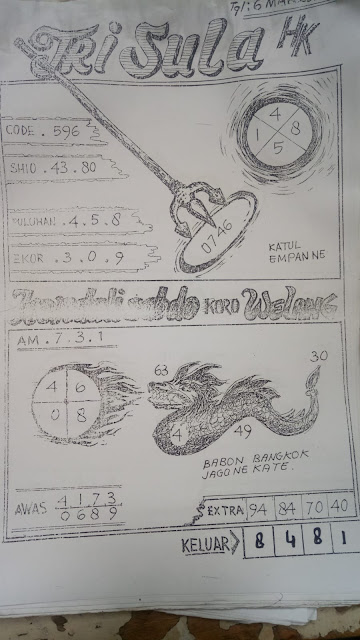 Tgl: 6 MAR
Tri Sula HK
CODE . 596
4
1 8
5
SHIO . 43 . 80
PULUHAN . 4 . 5 . 8
0746
EKOR . 3 . 0 . 9
KATUL
EMPAN NE
KORO WELANG
AM . 7 . 3 . 1
63
30
4 6
0 8
4
49
BABON BANGKOK
JAGO NE KATE.
AWAS 4 1 7 3
0 6 8 9
EXTRA 94 84 70 40
KELUAR 8 4 8 1